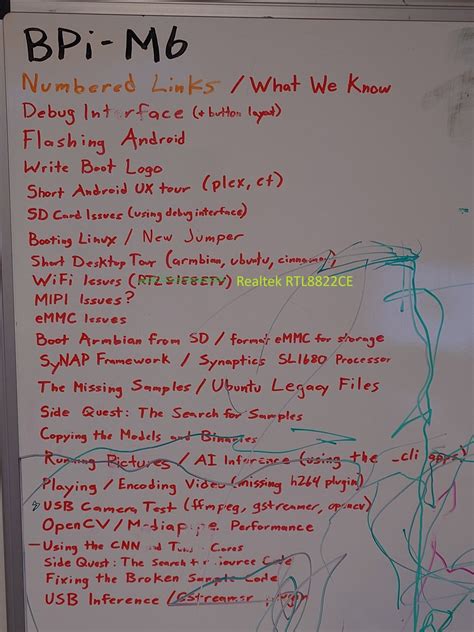 BPi-M6
Numbered Links / What We Know
Debug Interface (+ button layout)
Flashing Android
Write Boot Logo
Short Android UX tour (plex, ct)
SD Card Issues (using debug interface)
Booting Linux / New Jumper
Short Desktop Tour (armbian, ubuntu, cinnamon)
WiFi Issues ( Realtek RTL8822CE
MIPI Issues?
eMMC Issues
Boot Armbian from SD / format eMMC for storage
SyNAP Framework / Synaptics SL1680 Processor
The Missing Samples / Ubuntu Legacy Files
Side Quest: The Search for Samples
Copying the Models and Binaries
Running Pictures / AI Inference (using the _cli apps)
Playing / Encoding Video (missing h264 plugin)
USB Camera Test (ffmpeg, gstreamer, opencv)
OpenCV / Mediapipe Performance
- Using the CNN and Cores
Side Quest: The Search Source Code
Fixing the Broken Sample Code
USB Inference / Gstreamer plugin